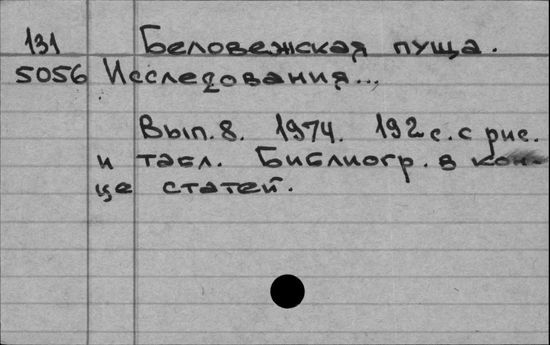 131 Беловежская пуща.
5056 Исследования...
Вып. 8. 1974. 192 с. с рис.
и табл. Библиогр. в кон-
це статей.